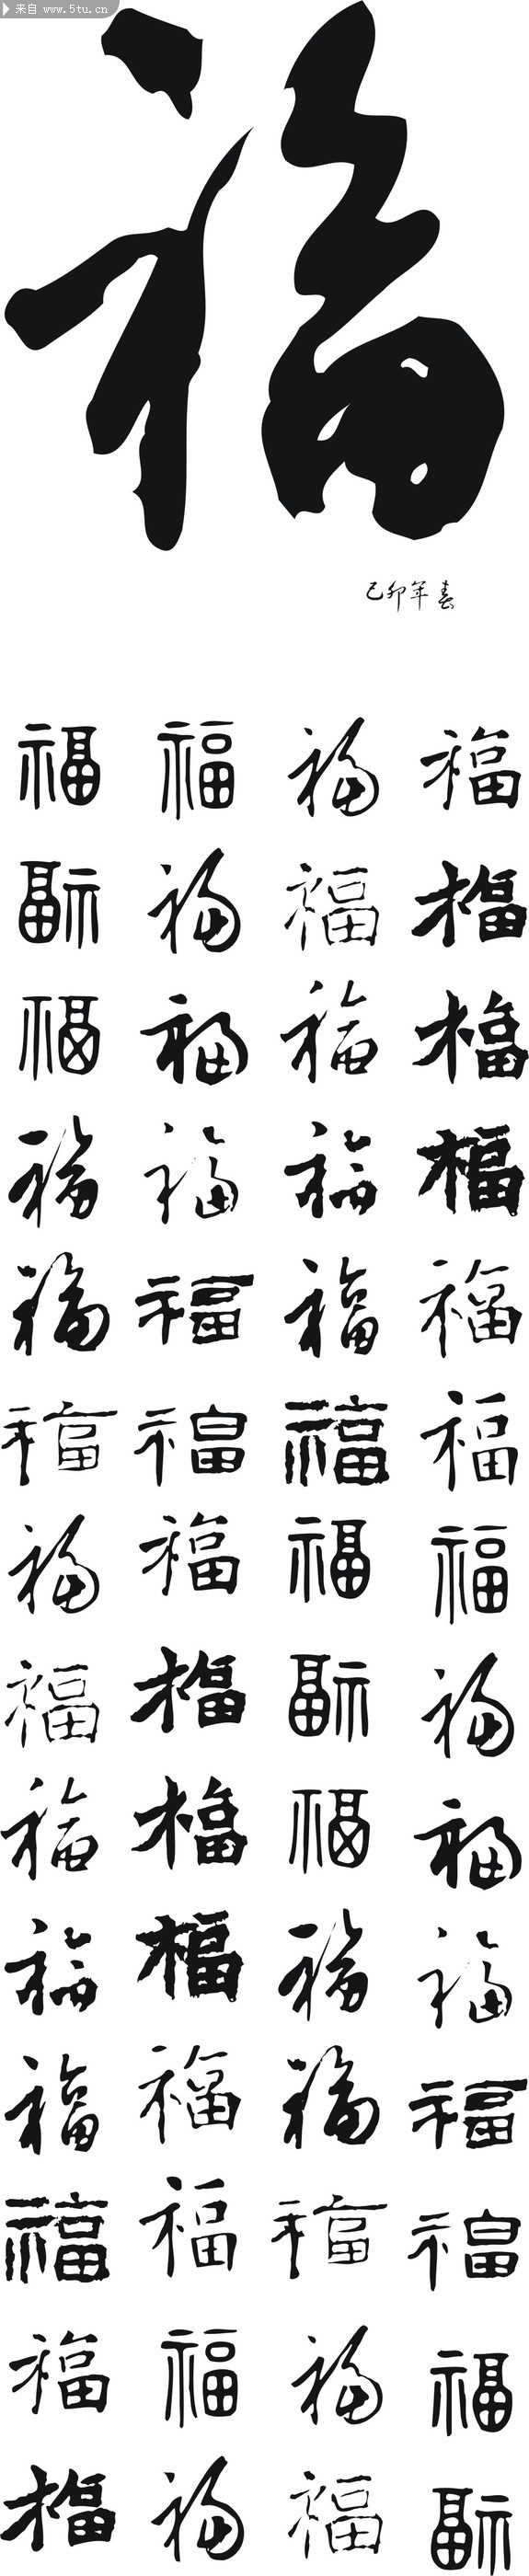 来自 www.5tu.cn
福
己卯年春
福 福 福 福
福 福 福 福
福 福 福 福
福 福 福 福
福 福 福 福
福 福 福 福
福 福 福 福
福 福 福 福
福 福 福 福
福 福 福 福
福 福 福 福
福 福 福 福
福 福 福 福
福 福 福 福